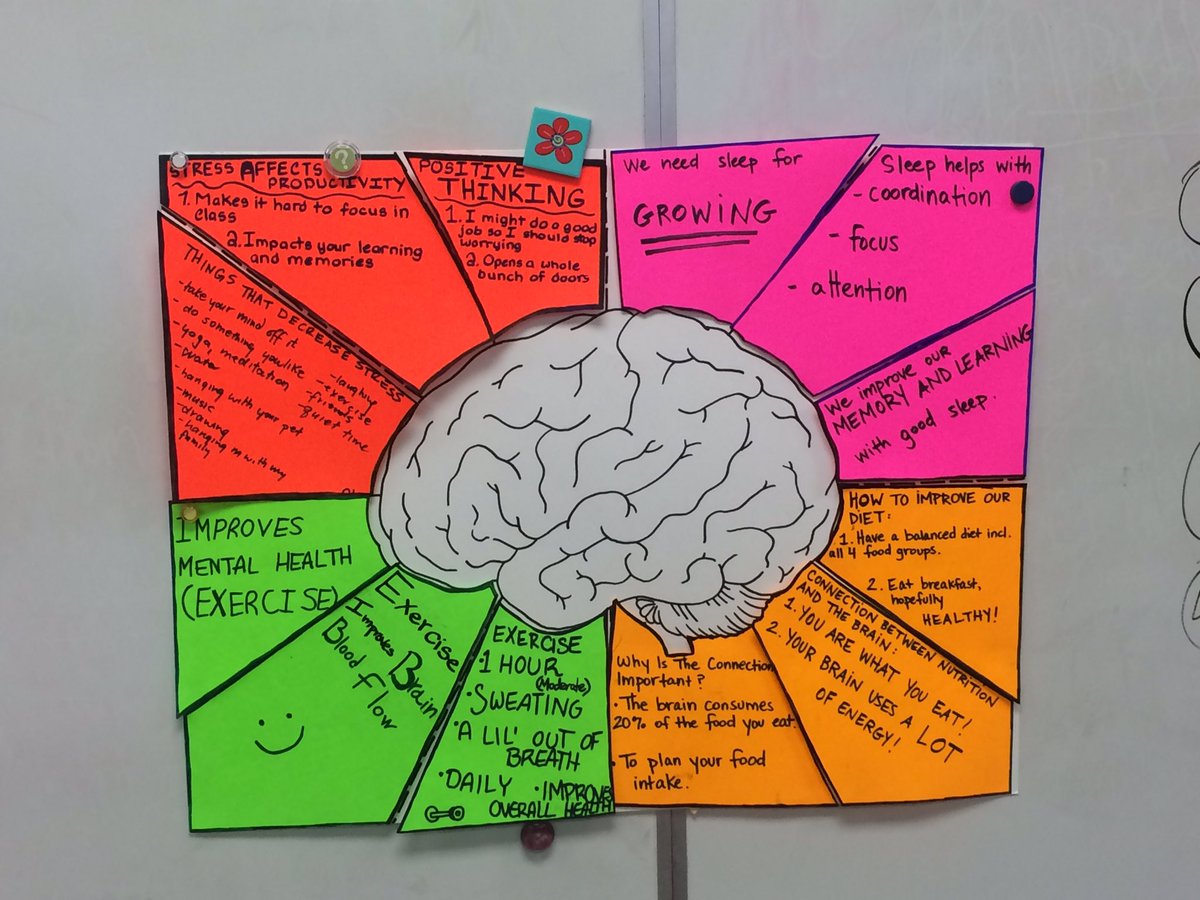 STRESS AFFECTS
PRODUCTIVITY
1. Makes it hard to focus in
class
2. Impacts your learning
and memories
POSITIVE
THINKING
1. I might do a good
job so I should stop
worrying
2. Opens a whole
bunch of doors
We need sleep for
GROWING
Sleep helps with
- coordination
- focus
- attention
We improve our
MEMORY AND LEARNING
with good sleep.
THINGS THAT DECREASE STRESS
- take your mind off it
- do something you like
- yoga, meditation
- water
- hanging with your pet
- music
- drawing
- hanging with my
family
- laughing
- exercise
- friends
- Quiet time
HOW TO IMPROVE OUR
DIET:
1. Have a balanced diet incl.
all 4 food groups.
2. Eat breakfast,
hopefully
HEALTHY!
CONNECTION BETWEEN NUTRITION
AND THE BRAIN:
1. YOU ARE WHAT YOU EAT!
2. YOUR BRAIN USES A LOT
OF ENERGY!
Why Is The Connection
Important?
• The brain consumes
20% of the food you eat
• To plan your food
intake.
IMPROVES
MENTAL HEALTH
(EXERCISE)
Exercise
Improves Brain
Blood flow
EXERCISE
1 HOUR
(Moderate)
• SWEATING
• A LIL' OUT OF
BREATH
• DAILY
• IMPROVES
OVERALL HEALTH
?